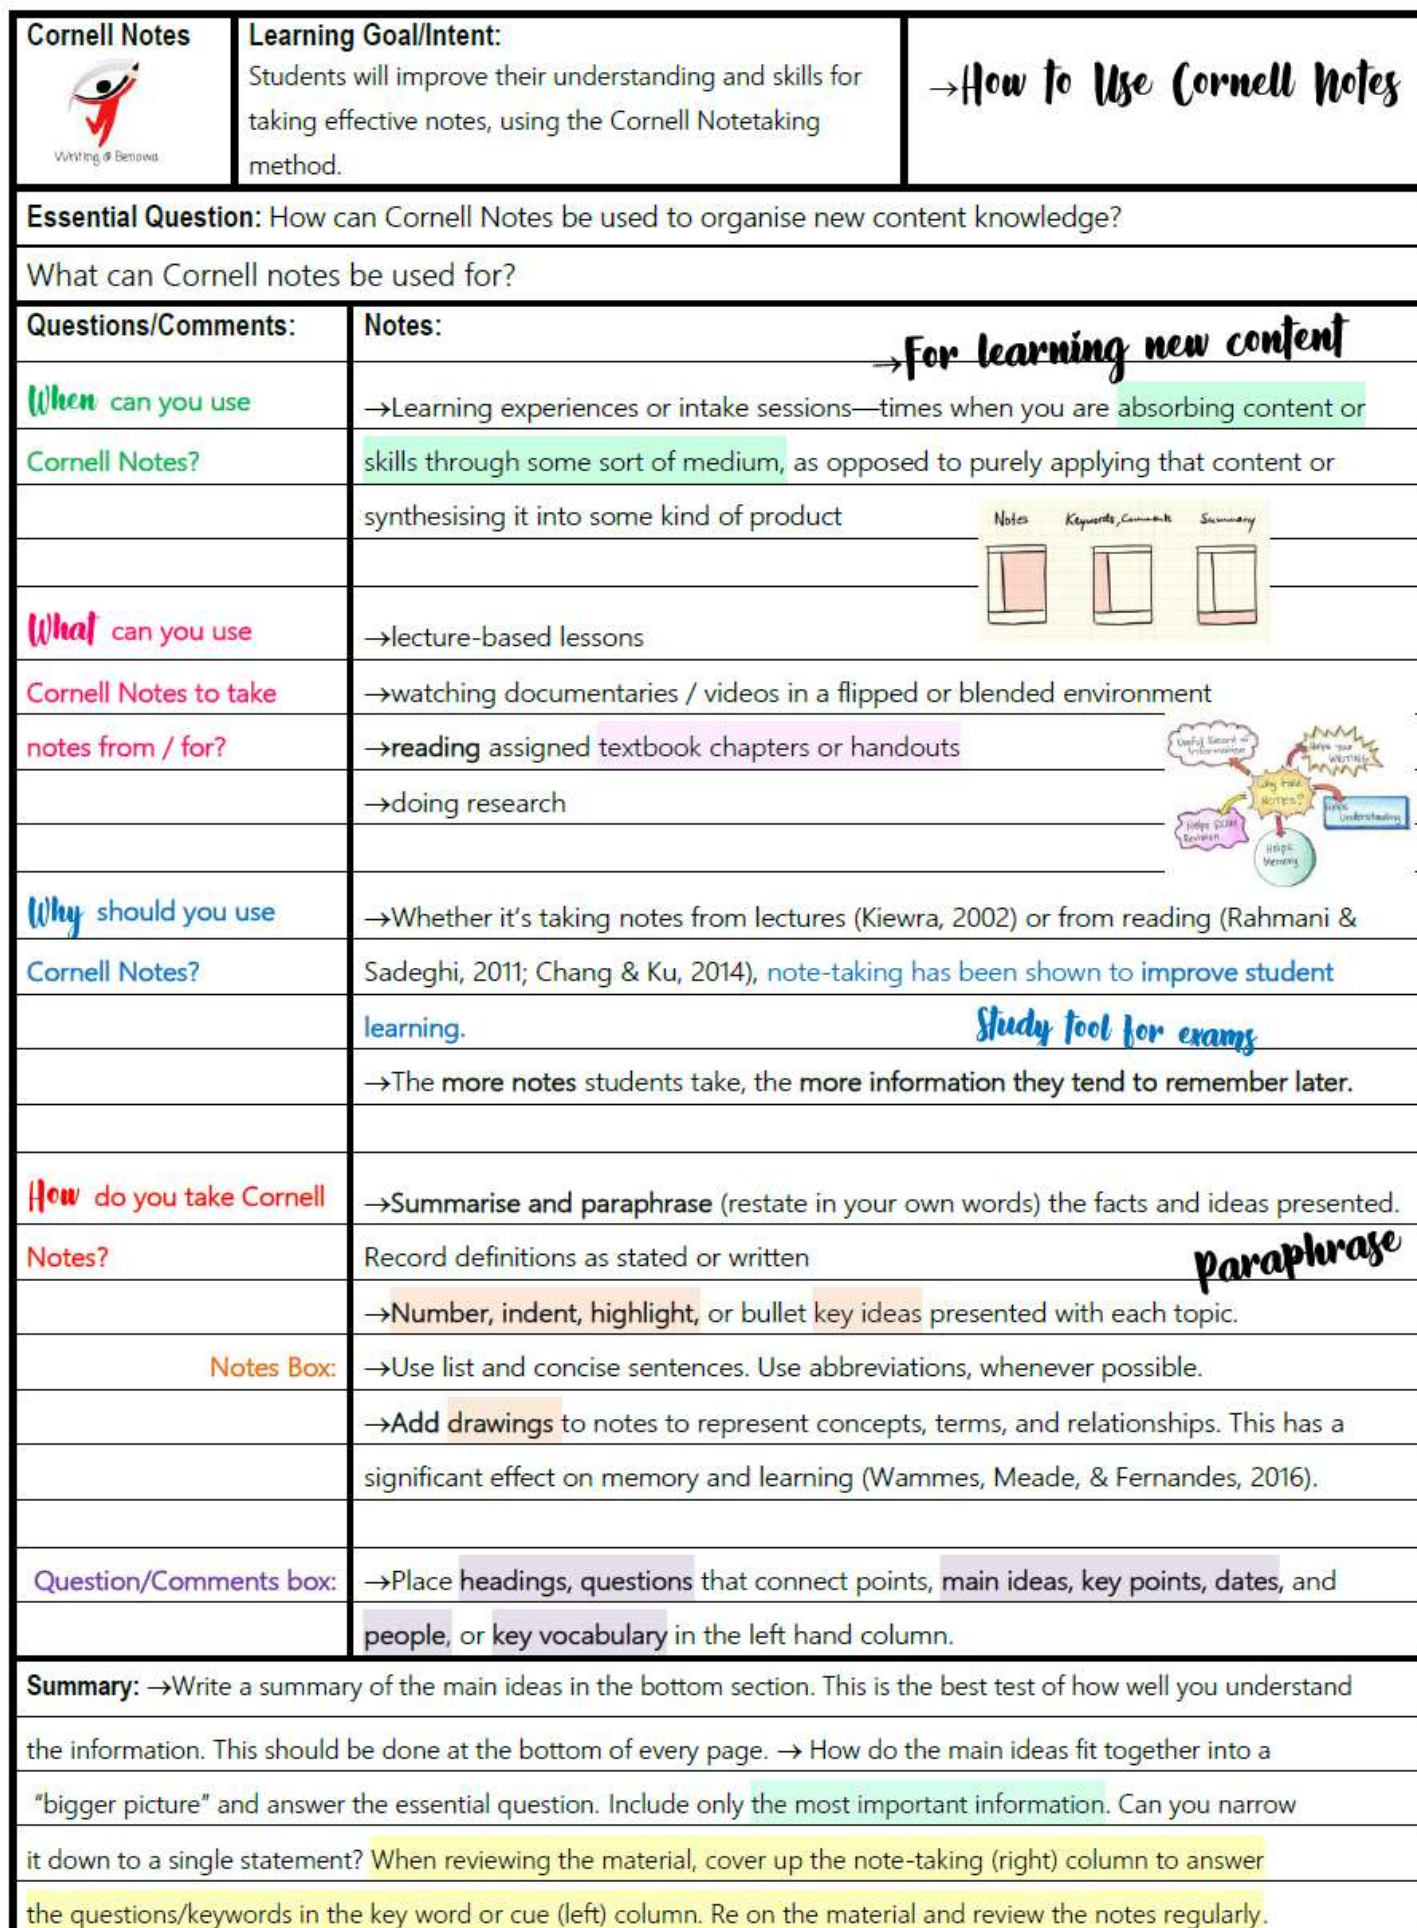 Cornell Notes
Writing @ Benowa
Learning Goal/Intent:
Students will improve their understanding and skills for
taking effective notes, using the Cornell Notetaking
method.
→How to Use Cornell Notes
Essential Question: How can Cornell Notes be used to organise new content knowledge?
What can Cornell notes be used for?
Questions/Comments:
Notes:
→For learning new content
When can you use
Cornell Notes?
→Learning experiences or intake sessions—times when you are absorbing content or
skills through some sort of medium, as opposed to purely applying that content or
synthesising it into some kind of product
Notes Keywords, Comments Summary
What can you use
Cornell Notes to take
notes from / for?
→lecture-based lessons
→watching documentaries / videos in a flipped or blended environment
→reading assigned textbook chapters or handouts
→doing research
Useful Record of
Information
Helps your
WRITING
Why take
NOTES?
Helps
Understanding
Helps EXAM
Revision
Helps
Memory
Why should you use
Cornell Notes?
→Whether it's taking notes from lectures (Kiewra, 2002) or from reading (Rahmani &
Sadeghi, 2011; Chang & Ku, 2014), note-taking has been shown to improve student
learning.
Study tool for exams
→The more notes students take, the more information they tend to remember later.
How do you take Cornell
Notes?
→Summarise and paraphrase (restate in your own words) the facts and ideas presented.
Record definitions as stated or written
Paraphrase
→Number, indent, highlight, or bullet key ideas presented with each topic.
Notes Box:
→Use list and concise sentences. Use abbreviations, whenever possible.
→Add drawings to notes to represent concepts, terms, and relationships. This has a
significant effect on memory and learning (Wammes, Meade, & Fernandes, 2016).
Question/Comments box:
→Place headings, questions that connect points, main ideas, key points, dates, and
people, or key vocabulary in the left hand column.
Summary: →Write a summary of the main ideas in the bottom section. This is the best test of how well you understand
the information. This should be done at the bottom of every page. → How do the main ideas fit together into a
"bigger picture" and answer the essential question. Include only the most important information. Can you narrow
it down to a single statement? When reviewing the material, cover up the note-taking (right) column to answer
the questions/keywords in the key word or cue (left) column. Re on the material and review the notes regularly.